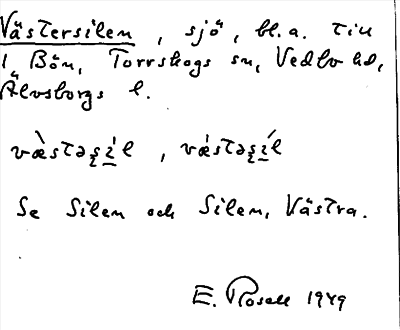 Västersilen , sjö , bl. a. till
1 Bön, Torrskogs sn, Vedbo hd,
Älvsborgs l.
væ̀stəʂi̲´l , væ´stəʂi̲´l
Se Silen och Silen, Västra.
E. Rosell 1949